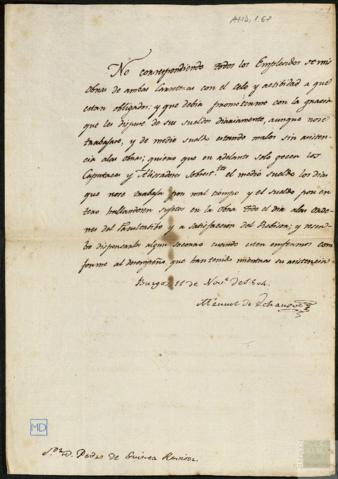 AMD, 1.67
No correspondiendo todos los Empleados de mis
obras de ambas Carreteras con el celo y actibidad a que
estan obligados; y que debia prometerme con la gracia
que les dispuse de su sueldo diariamente, aunque no se
trabajase, y de medio sueldo estando malos sin asisten
cia a las obras; quiero que en adelante solo gocen los
Capataces y Zeladores Sobrestes el medio sueldo los dias
que no se trabaje por mal tiempo y el sueldo por en
tero hallandose sujetos en la Obra todo el dia a las orde
nes del Facultatibo y a satisfaccion del Revisor; y reser
bo dispensarles algun socorro cuando esten enfermos con
forme al desempeño que han tenido mientras su asistencia.
Burgos 11 de Novre de 1804
Manuel de Echanove
MD
Sor Dn Pedro de Guinea